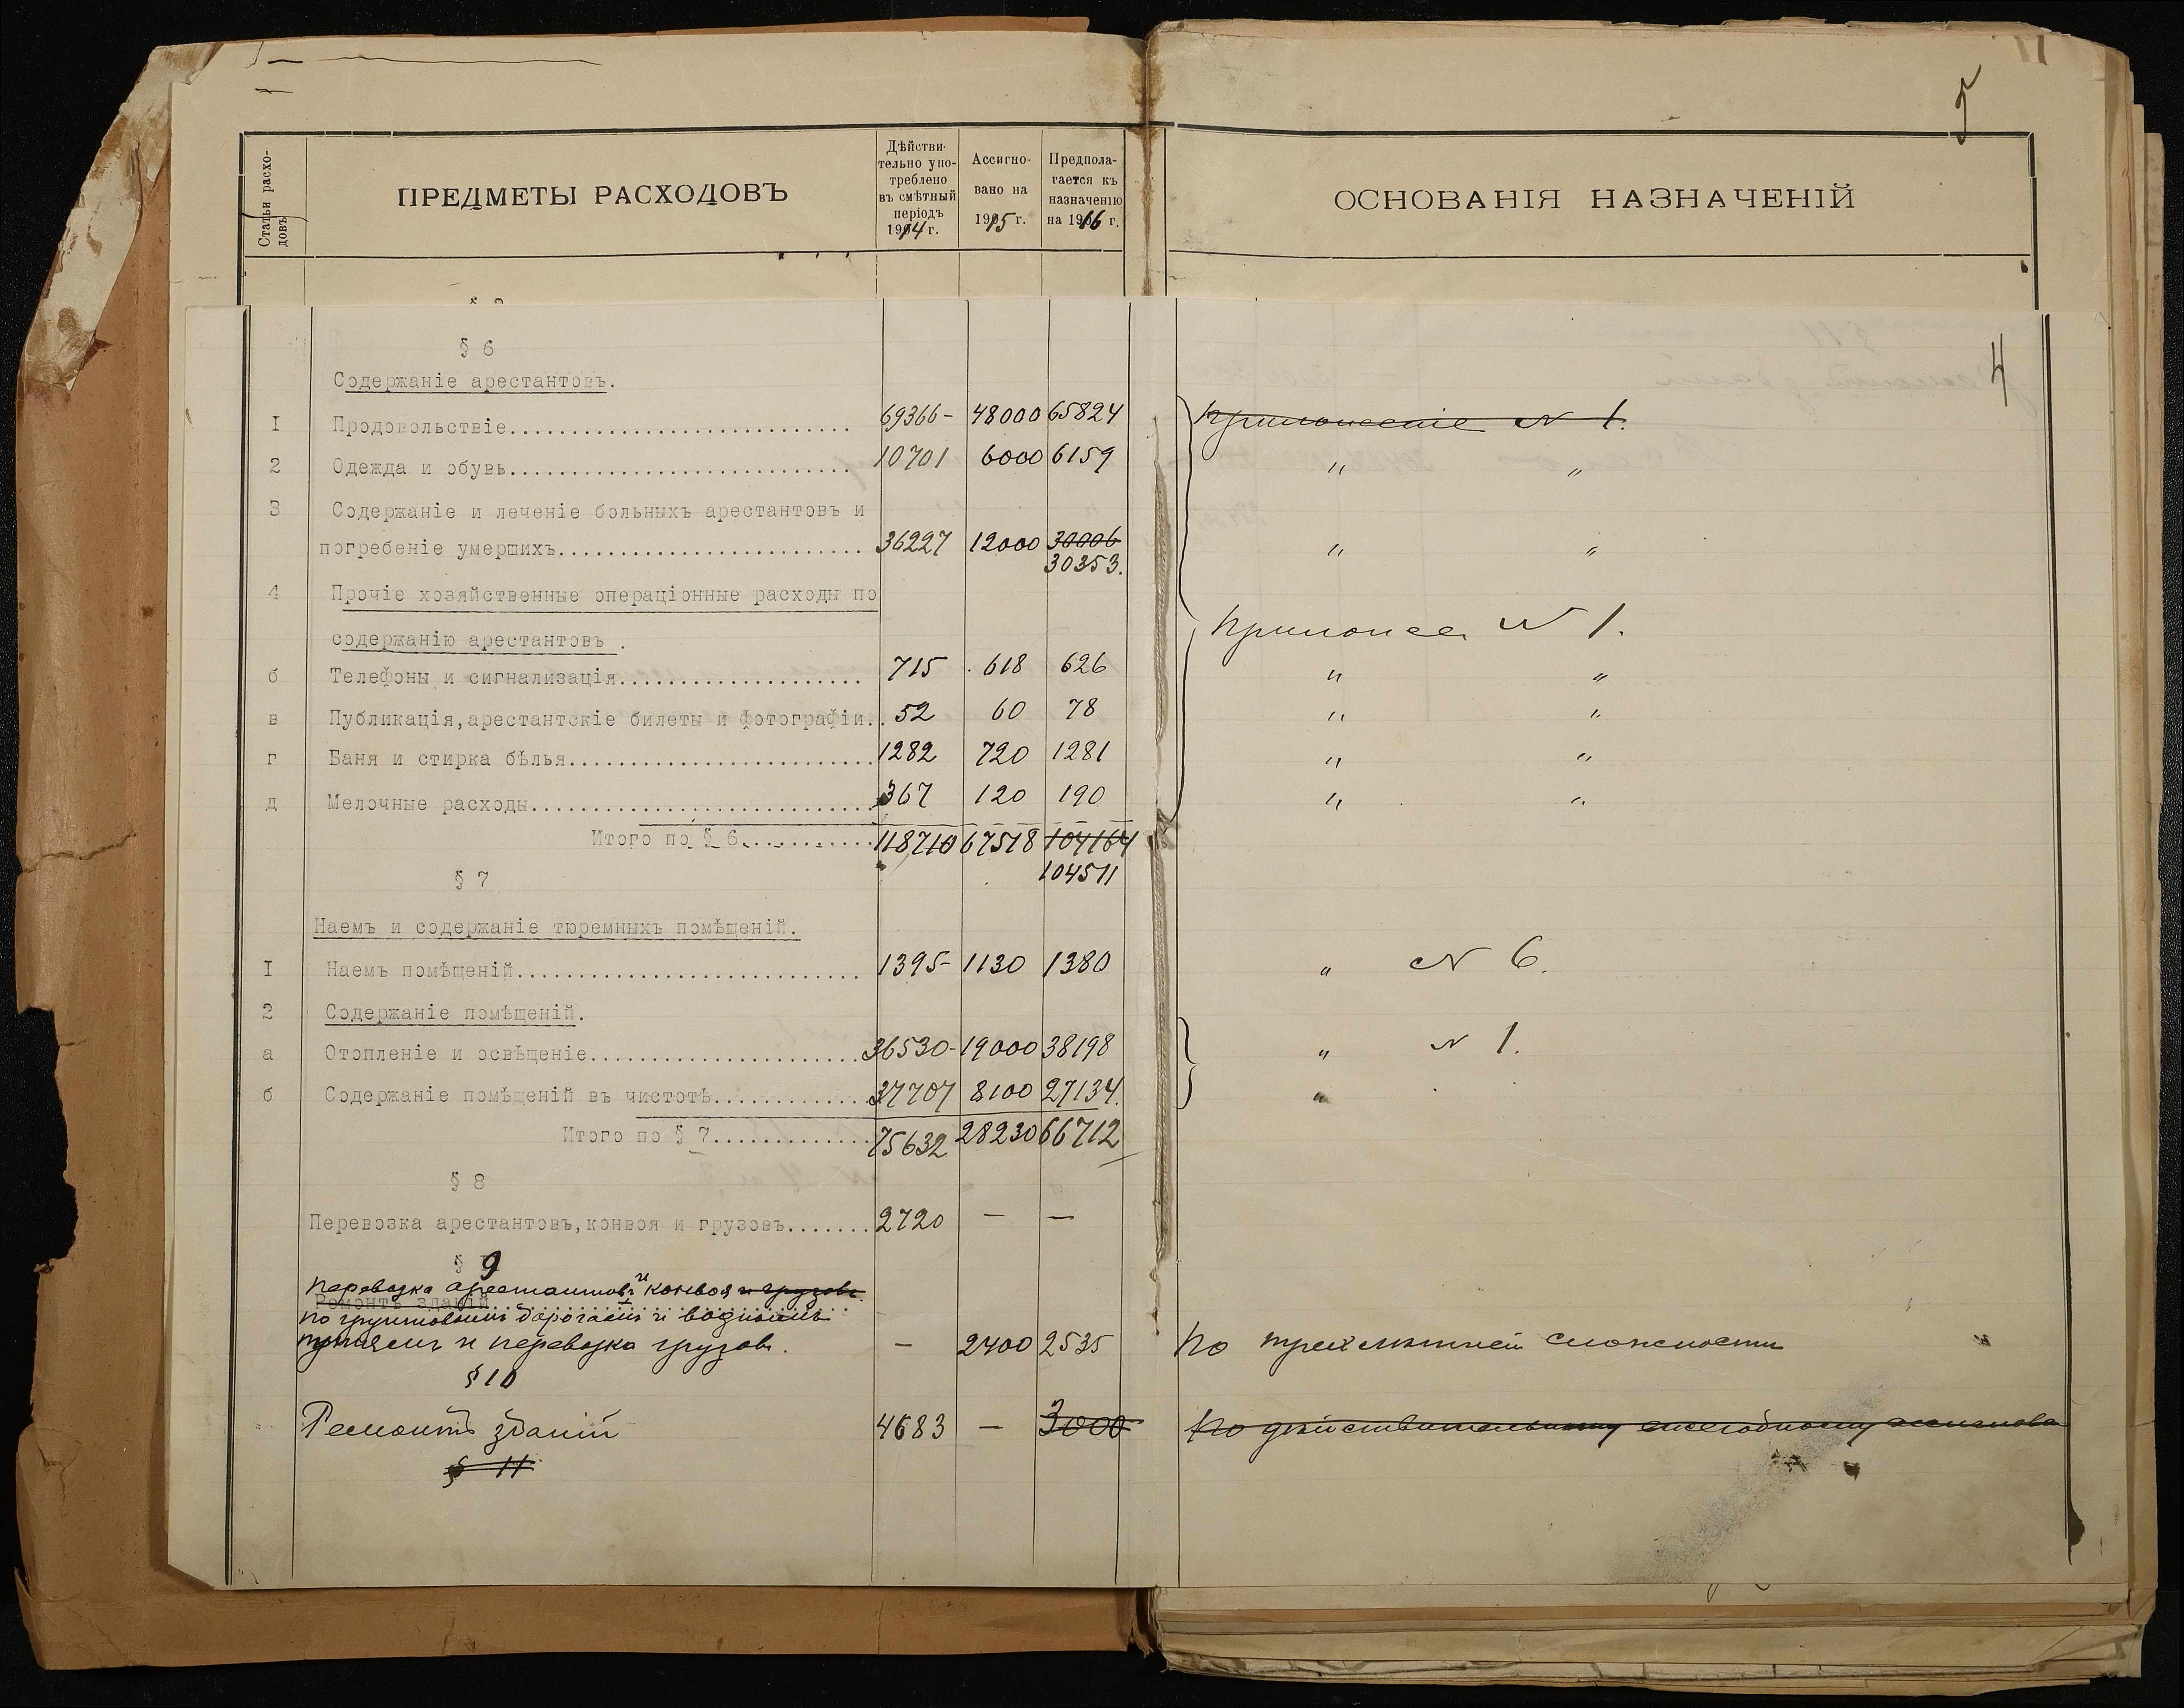 5
Статьи расхо-
довъ
ПРЕДМЕТЫ РАСХОДОВЪ
Дѣйстви-
тельно упо-
треблено
въ смѣтный
періодъ
1914 г.
Ассигно-
вано на
1915 г.
Предпола-
гается къ
назначенію
на 1916 г.
ОСНОВАНІЯ НАЗНАЧЕНІЙ
4
§ 6
Содержаніе арестантовъ.
I Продовольствіе 69366- 48000 65824 Приложеніе N 1.
2 Одежда и обувь 10701 6000 6159 " "
3 Содержаніе и леченіе больныхъ арестантовъ и
погребеніе умершихъ 36227 12000 30006 " "
30353.
4 Прочіе хозяйственные операціонные расходы по
содержанію арестантовъ. Прилож. N 1.
б Телефоны и сигнализація 715 618 626 " "
в Публикація, арестантскіе билеты и фотографіи 52 60 78 " "
г Баня и стирка бѣлья 1282 720 1281 " "
д Мелочные расходы 367 120 190 " "
Итого по § 6 118710 67518 104164
104511
§ 7
Наемъ и содержаніе тюремныхъ помѣщеній.
I Наемъ помѣщеній 1395- 1130 1380 " N 6.
2 Содержаніе помѣщеній.
а Отопленіе и освѣщеніе 36530- 19000 38198 " N 1.
б Содержаніе помѣщеній въ чистотѣ 37707 8100 27134. "
Итого по § 7 75632 28230 66712
§ 8
Перевозка арестантовъ, конвоя и грузовъ 2720 — —
§ 9
Перевозка арестантовъ и конвоя и грузовъ
Ремонтъ зданій
по грунтовымъ дорогамъ и воднымъ
путямъ и перевозка грузовъ. — 2400 2535 По трехлѣтней сложности
§ 10
Ремонтъ зданій 4683 — 3000 По дѣйствительному ежегодному ассигнова
§ 11